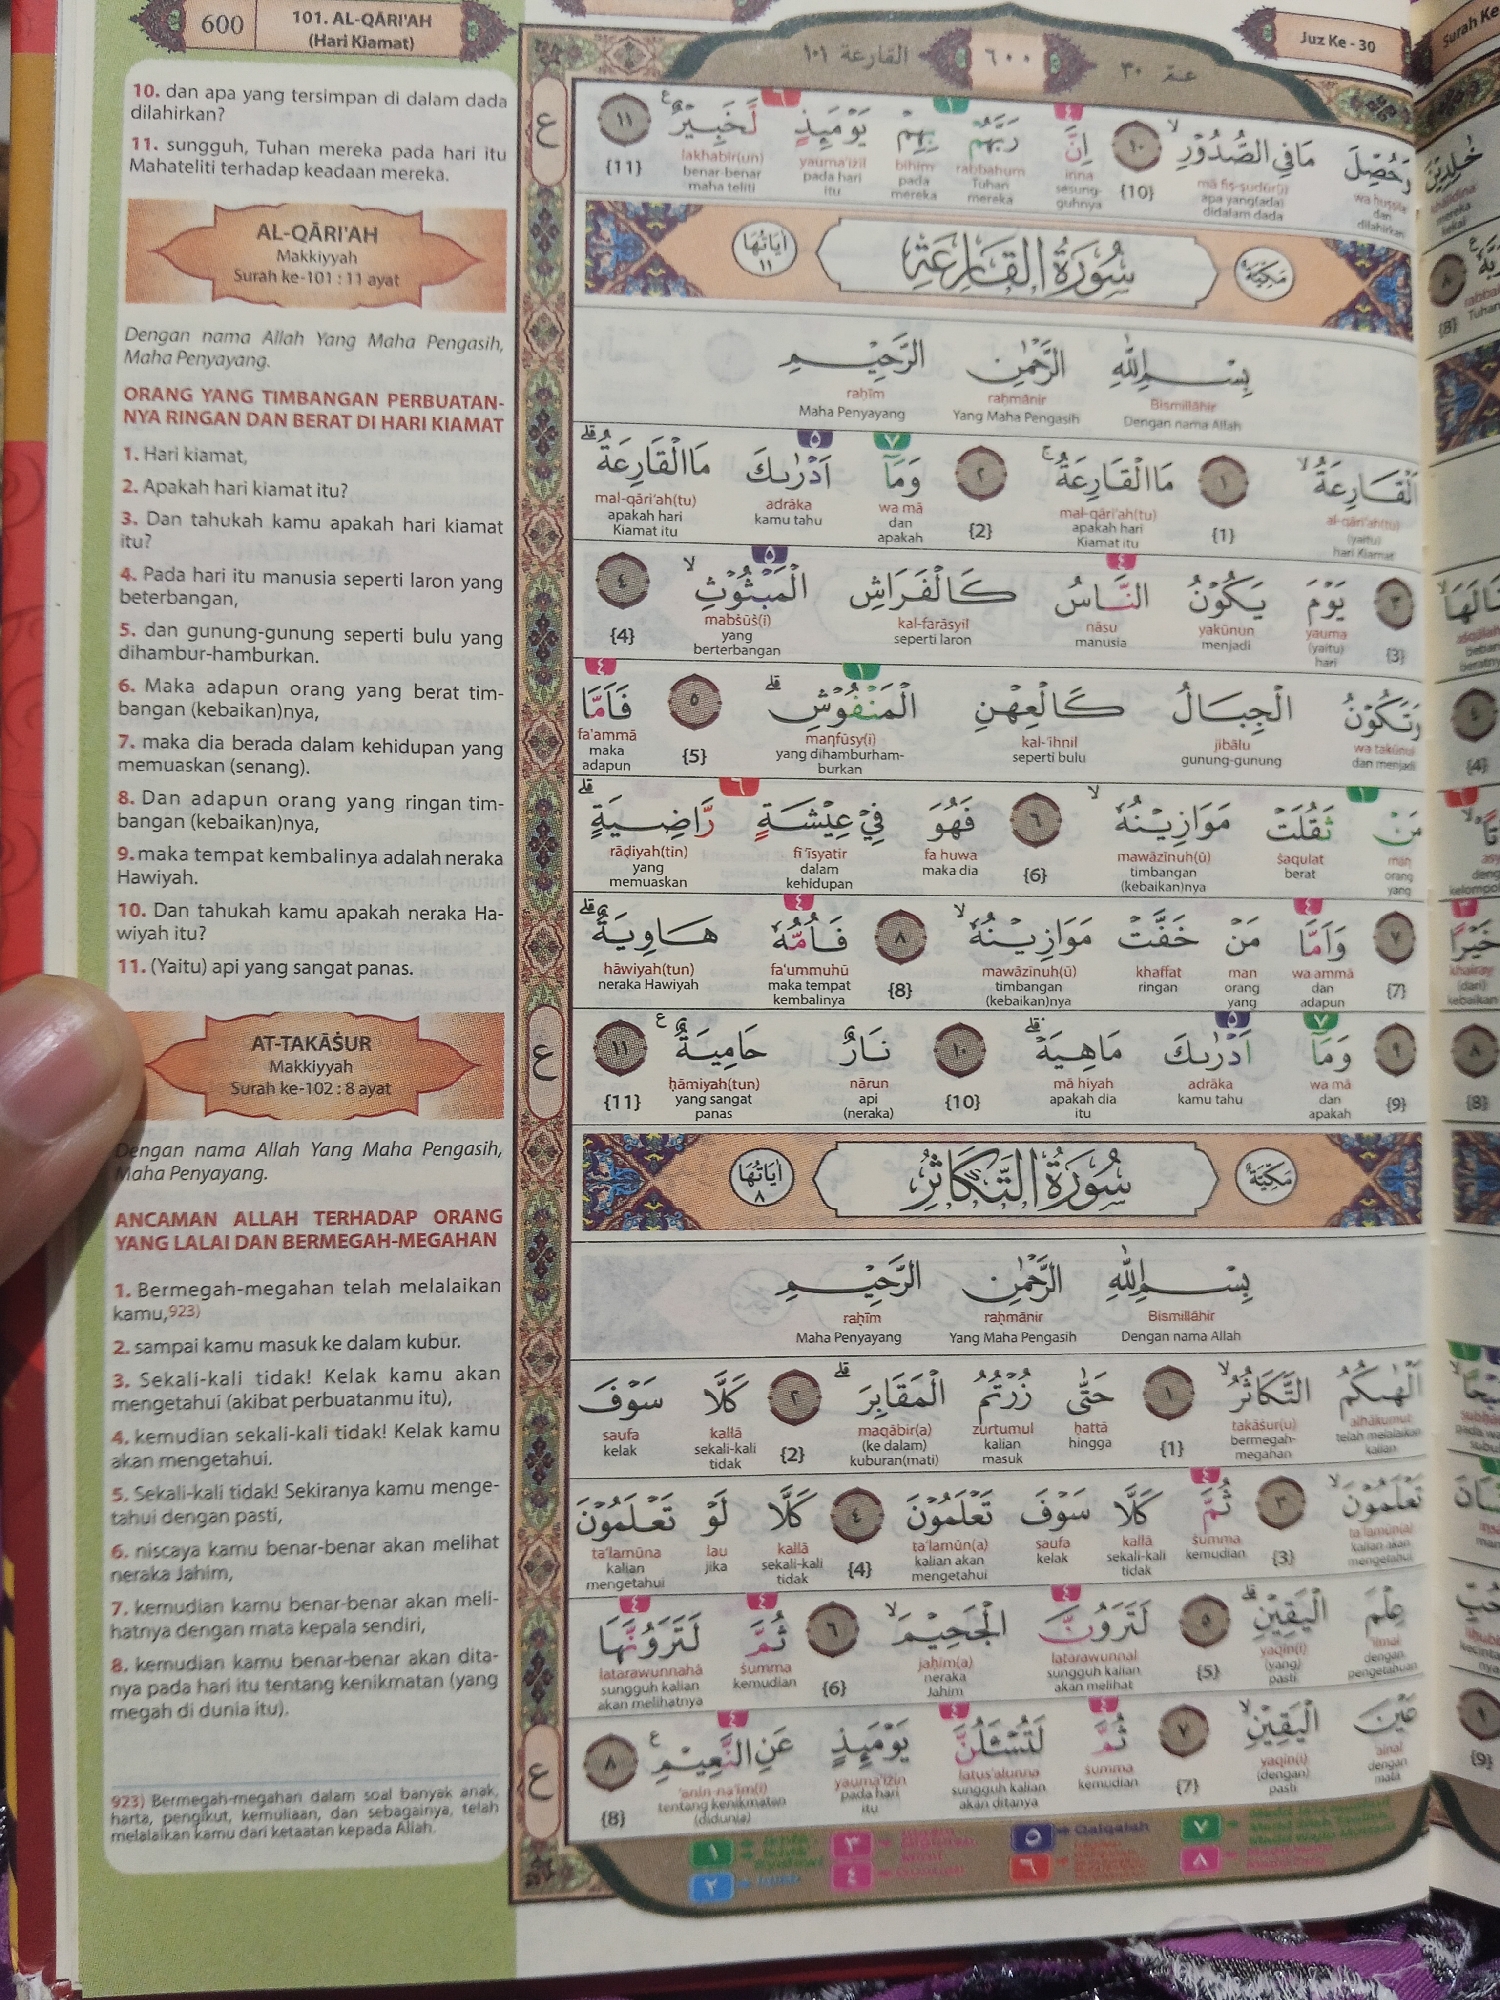 600
101. AL-QĀRI'AH
(Hari Kiamat)
القارعة ١٠١
٦٠٠
عمّ ٣٠
Juz Ke - 30
10. dan apa yang tersimpan di dalam dada
dilahirkan?
11. sungguh, Tuhan mereka pada hari itu
Mahateliti terhadap keadaan mereka.
AL-QĀRI'AH
Makkiyyah
Surah ke-101 : 11 ayat
Dengan nama Allah Yang Maha Pengasih,
Maha Penyayang.
ORANG YANG TIMBANGAN PERBUATAN-
NYA RINGAN DAN BERAT DI HARI KIAMAT
1. Hari kiamat,
2. Apakah hari kiamat itu?
3. Dan tahukah kamu apakah hari kiamat
itu?
4. Pada hari itu manusia seperti laron yang
beterbangan,
5. dan gunung-gunung seperti bulu yang
dihambur-hamburkan.
6. Maka adapun orang yang berat tim-
bangan (kebaikan)nya,
7. maka dia berada dalam kehidupan yang
memuaskan (senang).
8. Dan adapun orang yang ringan tim-
bangan (kebaikan)nya,
9. maka tempat kembalinya adalah neraka
Hawiyah.
10. Dan tahukah kamu apakah neraka Ha-
wiyah itu?
11. (Yaitu) api yang sangat panas.
AT-TAKĀṠUR
Makkiyyah
Surah ke-102 : 8 ayat
Dengan nama Allah Yang Maha Pengasih,
Maha Penyayang.
ANCAMAN ALLAH TERHADAP ORANG
YANG LALAI DAN BERMEGAH-MEGAHAN
1. Bermegah-megahan telah melalaikan
kamu,923)
2. sampai kamu masuk ke dalam kubur.
3. Sekali-kali tidak! Kelak kamu akan
mengetahui (akibat perbuatanmu itu),
4. kemudian sekali-kali tidak! Kelak kamu
akan mengetahui.
5. Sekali-kali tidak! Sekiranya kamu menge-
tahui dengan pasti,
6. niscaya kamu benar-benar akan melihat
neraka Jahim,
7. kemudian kamu benar-benar akan meli-
hatnya dengan mata kepala sendiri,
8. kemudian kamu benar-benar akan dita-
nya pada hari itu tentang kenikmatan (yang
megah di dunia itu).
923) Bermegah-megahan dalam soal banyak anak,
harta, pengikut, kemuliaan, dan sebagainya, telah
melalaikan kamu dari ketaatan kepada Allah.
وَحُصِّلَ مَا فِى الصُّدُوْرِۙ ١٠ اِنَّ رَبَّهُمْ بِهِمْ يَوْمَىِٕذٍ لَّخَبِيْرٌ ࣖ ١١
wa huṣṣila mā fiṣ-ṣudūr(i) {10} inna rabbahum bihim yauma'iżil lakhabīr(un) {11}
dan dilahirkan apa yang(ada) didalam dada sesung-guhnya Tuhan mereka pada mereka pada hari itu benar-benar maha teliti
مَكِّيَّة سُوْرَةُ الْقَارِعَةِ اٰيَاتُهَا ١١
بِسْمِ اللّٰهِ الرَّحْمٰنِ الرَّحِيْمِ
Bismillāhir raḥmānir raḥīm
Dengan nama Allah Yang Maha Pengasih Maha Penyayang
اَلْقَارِعَةُۙ ١ مَا الْقَارِعَةُۚ ٢ وَمَآ اَدْرٰىكَ مَا الْقَارِعَةُۗ
al-qāri'ah(tu) {1} mal-qāri'ah(tu) {2} wa mā adrāka mal-qāri'ah(tu)
(yaitu) hari Kiamat apakah hari Kiamat itu dan apakah kamu tahu apakah hari Kiamat itu
٣ يَوْمَ يَكُوْنُ النَّاسُ كَالْفَرَاشِ الْمَبْثُوْثِۙ ٤
{3} yauma yakūnun nāsu kal-farāsyil mabṡūṡ(i) {4}
(yaitu) hari menjadi manusia seperti laron yang berterbangan
وَتَكُوْنُ الْجِبَالُ كَالْعِهْنِ الْمَنْفُوْشِۗ ٥ فَاَمَّا
wa takūnul jibālu kal-'ihnil manfūsy(i) {5} fa'ammā
dan menjadi gunung-gunung seperti bulu yang dihamburham-burkan maka adapun
مَنْ ثَقُلَتْ مَوَازِيْنُهٗۙ ٦ فَهُوَ فِيْ عِيْشَةٍ رَّاضِيَةٍۗ
man ṡaqulat mawāzīnuh(ū) {6} fa huwa fī 'īsyatir rāḍiyah(tin)
orang yang berat timbangan (kebaikan)nya maka dia dalam kehidupan yang memuaskan
٧ وَاَمَّا مَنْ خَفَّتْ مَوَازِيْنُهٗۙ ٨ فَاُمُّهٗ هَاوِيَةٌۗ
{7} wa ammā man khaffat mawāzīnuh(ū) {8} fa'ummuhū hāwiyah(tun)
dan adapun orang yang ringan timbangan (kebaikan)nya maka tempat kembalinya neraka Hawiyah
٩ وَمَآ اَدْرٰىكَ مَا هِيَهْۗ ١٠ نَارٌ حَامِيَةٌ ࣖ ١١
{9} wa mā adrāka mā hiyah {10} nārun ḥāmiyah(tun) {11}
dan apakah kamu tahu apakah dia itu api (neraka) yang sangat panas
مَكِّيَّة سُوْرَةُ التَّكَاثُرِ اٰيَاتُهَا ٨
بِسْمِ اللّٰهِ الرَّحْمٰنِ الرَّحِيْمِ
Bismillāhir raḥmānir raḥīm
Dengan nama Allah Yang Maha Pengasih Maha Penyayang
اَلْهٰىكُمُ التَّكَاثُرُۙ ١ حَتّٰى زُرْتُمُ الْمَقَابِرَۗ ٢ كَلَّا سَوْفَ
alhākumut takāṡur(u) {1} ḥattā zurtumul maqābir(a) {2} kallā saufa
telah melalaikan kalian bermegah-megahan hingga kalian masuk (ke dalam) kuburan(mati) sekali-kali tidak kelak
تَعْلَمُوْنَۙ ٣ ثُمَّ كَلَّا سَوْفَ تَعْلَمُوْنَ ٤ كَلَّا لَوْ تَعْلَمُوْنَ
ta'lamūn(a) {3} ṡumma kallā saufa ta'lamūn(a) {4} kallā lau ta'lamūna
kalian akan mengetahui kemudian sekali-kali tidak kelak kalian akan mengetahui sekali-kali tidak jika kalian mengetahui
عِلْمَ الْيَقِيْنِۗ ٥ لَتَرَوُنَّ الْجَحِيْمَۙ ٦ ثُمَّ لَتَرَوُنَّهَا
'ilmal yaqīn(i) {5} latarawunnal jaḥīm(a) {6} ṡumma latarawunnahā
dengan pengetahuan (yang) pasti sungguh kalian akan melihat neraka Jahim kemudian sungguh kalian akan melihatnya
عَيْنَ الْيَقِيْنِۙ ٧ ثُمَّ لَتُسْـَٔلُنَّ يَوْمَىِٕذٍ عَنِ النَّعِيْمِ ࣖ ٨
ainal yaqīn(i) {7} ṡumma latus'alunna yauma'iżin 'anin-na'īm(i) {8}
dengan mata (dengan) pasti kemudian sungguh kalian akan ditanya pada hari itu tentang kenikmatan (didunia)
١ ٣ ٥ Qalqalah ٧
٢ ٤ ٦ ٨